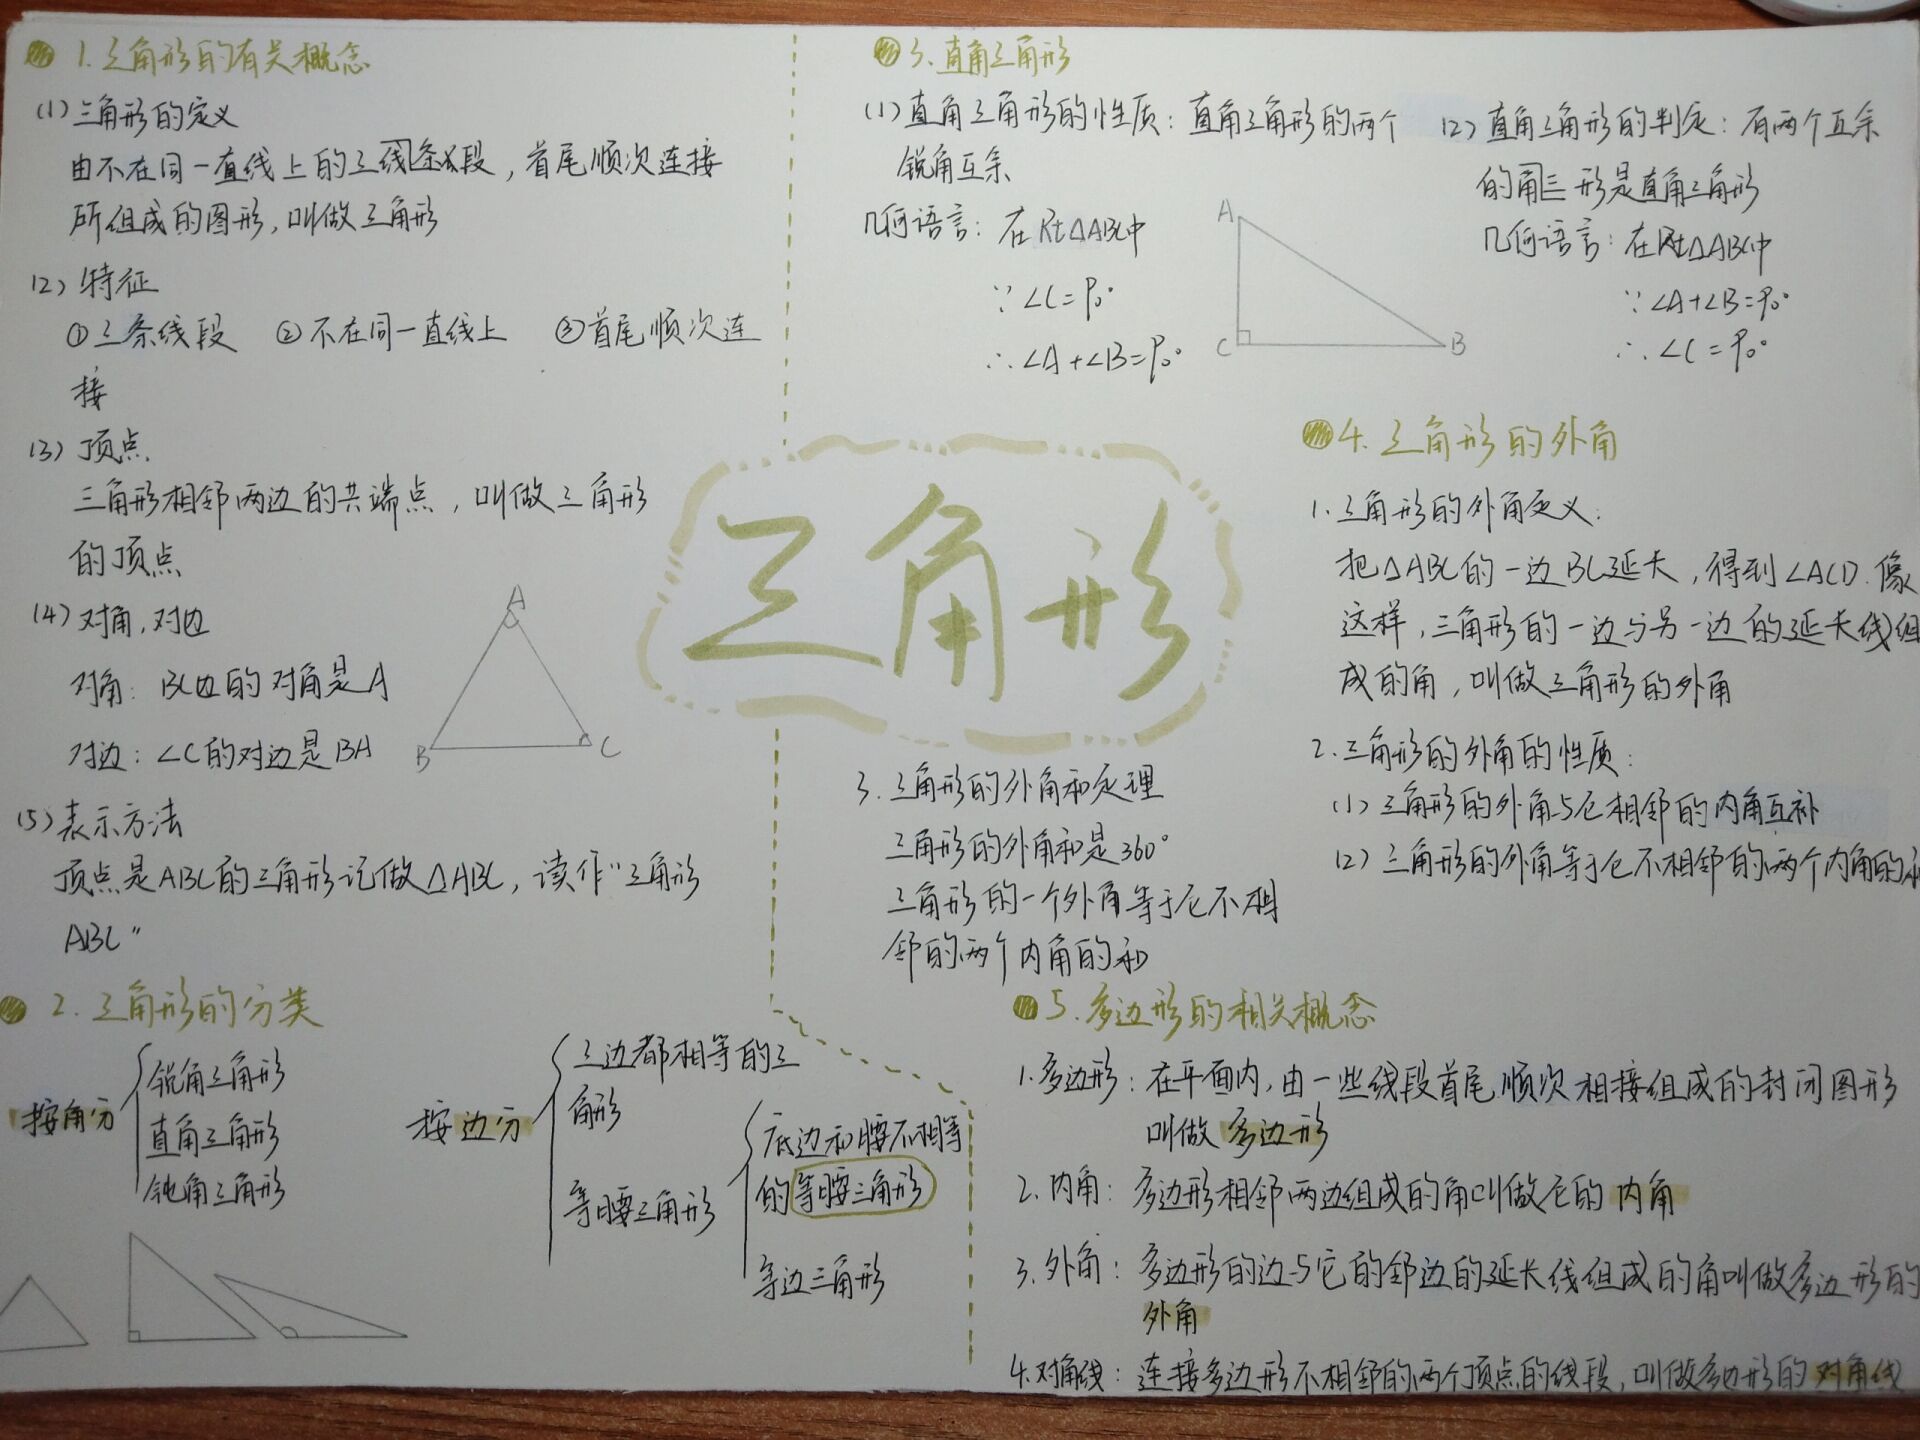 1.三角形的有关概念
(1)三角形的定义
由不在同一直线上的三线条段,首尾顺次连接
所组成的图形,叫做三角形
(2)特征
①三条线段 ②不在同一直线上 ③首尾顺次连
接
(3)顶点.
三角形相邻两边的共端点,叫做三角形
的顶点
(4)对角,对边
对角:BC边的对角是A
对边:∠C的对边是BA
A
B
C
(5)表示方法
顶点是ABC的三角形记做△ABC,读作"三角形
ABC"
2.三角形的分类
按角分
锐角三角形
直角三角形
钝角三角形
按边分
三边都相等的三
角形
等腰三角形
底边和腰不相等
的等腰三角形
等边三角形
三角形
3.直角三角形
(1)直角三角形的性质:直角三角形的两个
锐角互余
几何语言:在Rt△ABC中
∵∠C=90°
∴∠A+∠B=90°
A
C
B
(2)直角三角形的判定:有两个互余
的角三形是直角三角形
几何语言:在Rt△ABC中
∵∠A+∠B=90°
∴∠C=90°
4.三角形的外角
1.三角形的外角定义:
把△ABC的一边BC延长,得到∠ACD.像
这样,三角形的一边与另一边的延长线组
成的角,叫做三角形的外角
2.三角形的外角的性质:
(1)三角形的外角与它相邻的内角互补
(2)三角形的外角等于它不相邻的两个内角的和
3.三角形的外角和定理
三角形的外角和是360°
三角形的一个外角等于它不相
邻的两个内角的和
5.多边形的相关概念
1.多边形:在平面内,由一些线段首尾顺次相接组成的封闭图形
叫做多边形
2.内角:多边形相邻两边组成的角叫做它的内角
3.外角:多边形的边与它的邻边的延长线组成的角叫做多边形的
外角
4.对角线:连接多边形不相邻的两个顶点的线段,叫做多边形的对角线